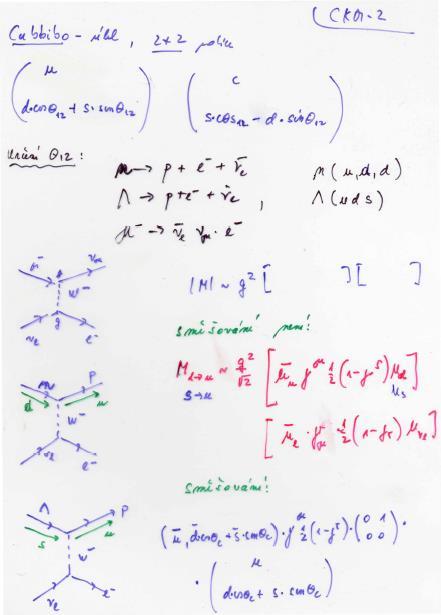 CKM-2
Cabbibo-úhel, 2+2 polím
u
d·cosθ₁₂ + s·sinθ₁₂
c
s·cos₁₂ - d·sinθ₁₂
Určení θ12:
n → p + e⁻ + ν̄e n(u,d,d)
Λ → p+e⁻ + ν̄e , Λ(uds)
μ⁻ → ν̄e νμ · e⁻
μ⁻ νμ
W⁻
g
νe e⁻
|M| ~ g² [ ] [ ]
směšování není!
n p
d u
W⁻
νe e⁻
M d→u ~ g²/√2 [ ūu γ^μ ½ (1-γ⁵) ud ]
s→u us
[ ūe · γμ ½ (1-γ5) uνe ]
směšování!
Λ p
s u
W⁻
νe e⁻
(ū, d̄cosθc + s̄·sinθc)·γ^μ ½(1-γ⁵)·(0 1
0 0) ·
· ( u
d cosθc + s·sinθc )